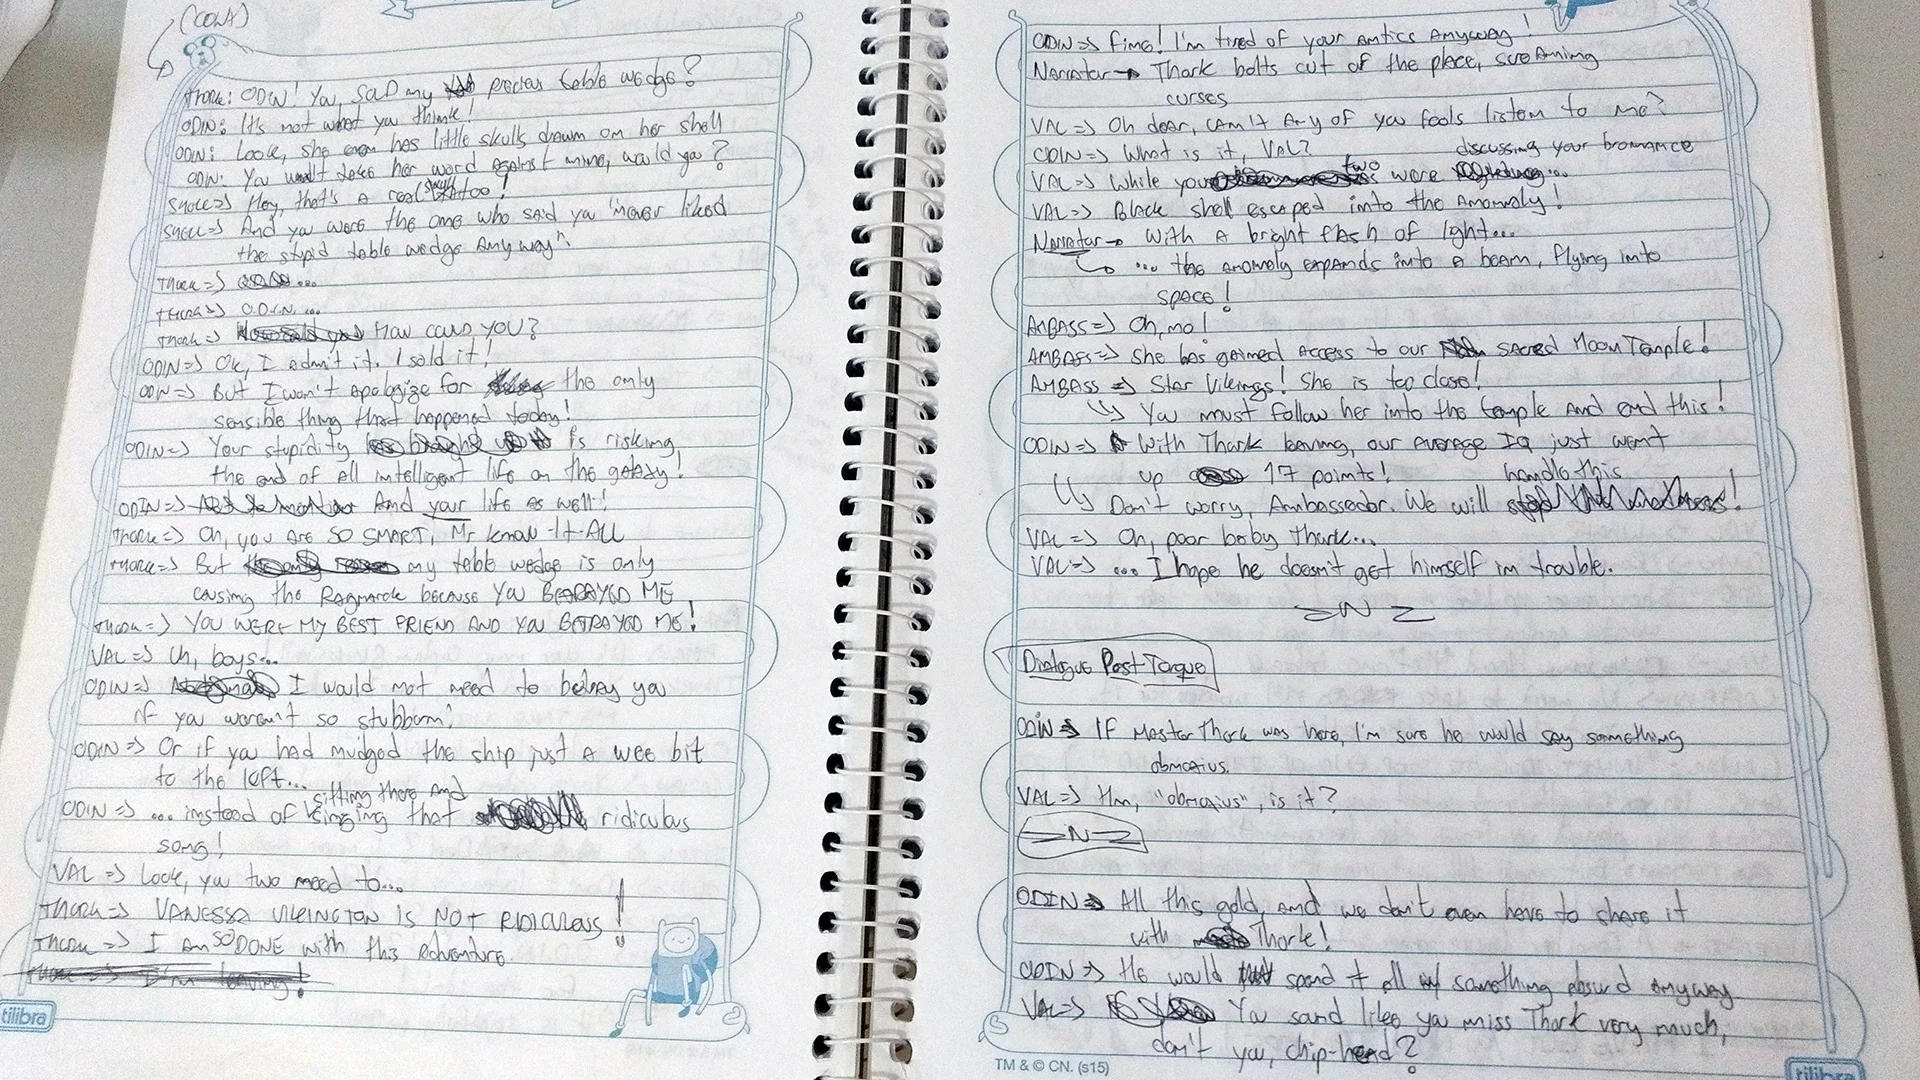 (CONT)
THORK: ODIN! You, SOLD my precious table wedge?
ODIN: It's not what you think!
ODIN: Look, she even has little skulls drawn on her shell
ODIN: You won't take her word against mine, would you?
SHELL=> Hey, that's a real skull tattoo!
SHELL=> And you were the one who said you "never liked
the stupid table wedge anyway".
THORK=> ...
THORK=> O.D.I.N. ...
THORK=> HOW COULD YOU?
ODIN=> Ok, I admit it, I sold it!
ODIN=> But I won't apologize for the only
sensible thing that happened today!
ODIN=> Your stupidity is risking
the end of all intelligent life on the galaxy!
ODIN=> And your life as well!
THORK=> Oh, you are SO SMART, Mr Know-It-ALL
THORK=> But my table wedge is only
causing the Ragnarok because YOU BETRAYED ME
THORK=> YOU WERE MY BEST FRIEND AND YOU BETRAYED ME!
VAL=> Uh, boys...
ODIN=> I would not need to betray you
if you weren't so stubborn!
ODIN=> Or if you had nudged the ship just a wee bit
to the left...
ODIN=> ... instead of sitting there and singing that ridiculous
song!
VAL=> Look, you two need to...
THORK=> VANESSA VIKINGTON IS NOT RIDICULOUS!
THORK=> I am so DONE with this adventure.
THORK=> I'm leaving!
tilibra
ODIN=> Fine! I'm tired of your antics anyway!
Narrator-> Thork bolts out of the place, screaming
curses
VAL=> Oh dear, can't any of you fools listen to me?
ODIN=> What is it, VAL?
VAL=> While you two were discussing your bromance
VAL=> Black shell escaped into the anomaly!
Narrator-> With a bright flash of light...
... the anomaly expands into a beam, flying into
space!
AMBASS=> Oh, no!
AMBASS=> She has gained access to our sacred Moon Temple!
AMBASS=> Star Vikings! She is too close!
You must follow her into the temple and end this!
ODIN=> With Thork leaving, our average IQ just went
up 17 points!
Don't worry, Ambassador. We will handle this!
VAL=> Oh, poor baby Thork...
VAL=> ... I hope he doesn't get himself in trouble.
=N=
Dialogue Post-Torque
ODIN=> If Master Thork was here, I'm sure he would say something
obnoxius.
VAL=> Hm, "obnoxius", is it?
=N=
ODIN=> All this gold, and we don't even have to share it
with Thork!
ODIN=> He would spend it all w/ something absurd anyway
VAL=> You sound like you miss Thork very much,
don't you, chip-head?
TM & © CN. (s15)
tilibra